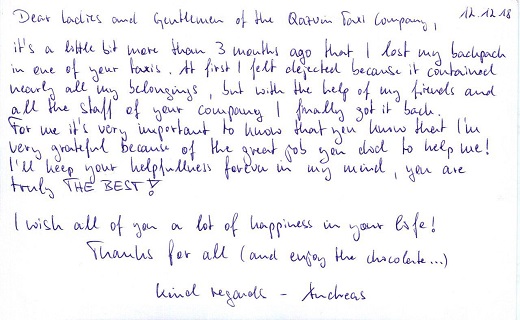 Dear Ladies and Gentlemen of the Qazvin Taxi Company, 12.12.18
it's a little bit more than 3 months ago that I lost my backpack
in one of your taxis. At first I felt dejected because it contained
nearly all my belongings, but with the help of my friends and
all the staff of your company I finally got it back.
For me it's very important to know that you know that I'm
very grateful because of the great job you did to help me!
I'll keep your helpfullness forever in my mind, you are
truly THE BEST!
I wish all of you a lot of happiness in your life!
Thanks for all (and enjoy the chocolate...)
Kind regards - Andreas